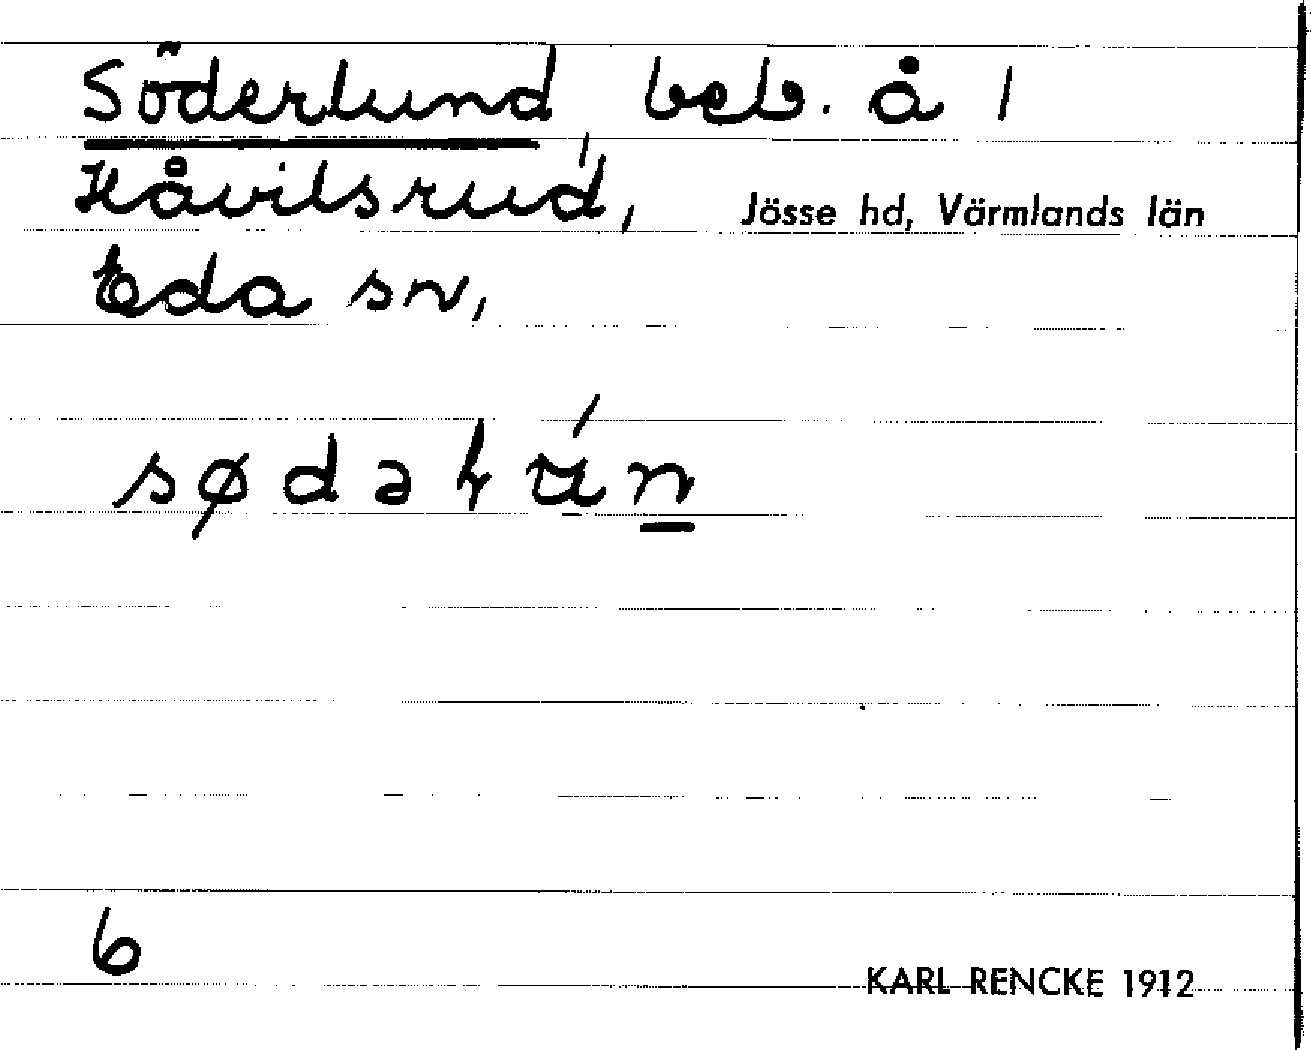 Söderlund, beb. å 1
Håvilsrud, Jösse hd, Värmlands län
Eda sn,
6
KARL RENCKE 1912